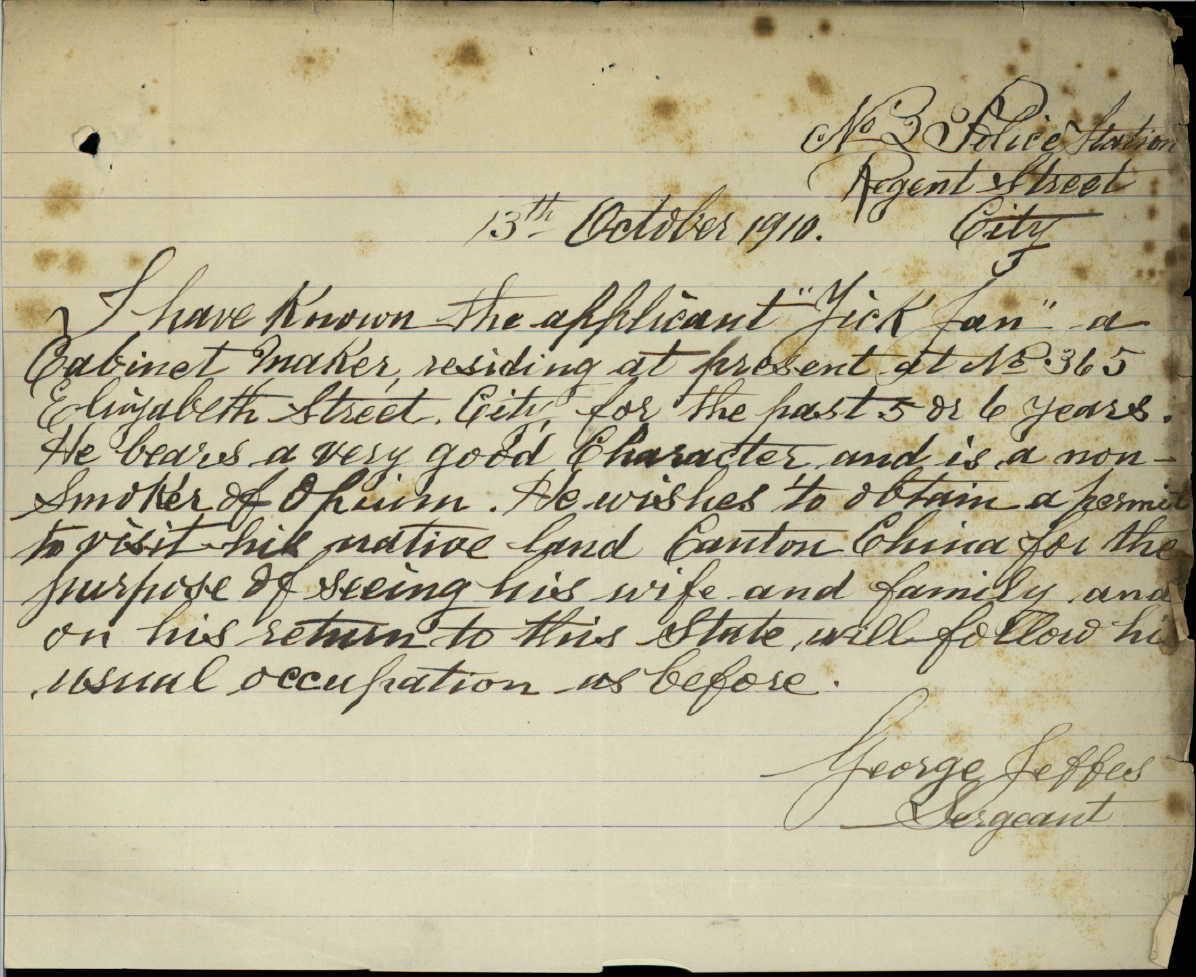 No 3 Police Station
Regent Street
City
13th October 1910.
I have known the applicant "Yick Jan" a
Cabinet maker, residing at present at No. 365
Elizabeth Street. City, for the past 5 or 6 years.
He bears a very good Character and is a non-
Smoker of Opium. He wishes to obtain a permit
to visit his native land Canton China for the
purpose of seeing his wife and family and
on his return to this State, will follow his
usual occupation as before.
George Jeffes
Sergeant